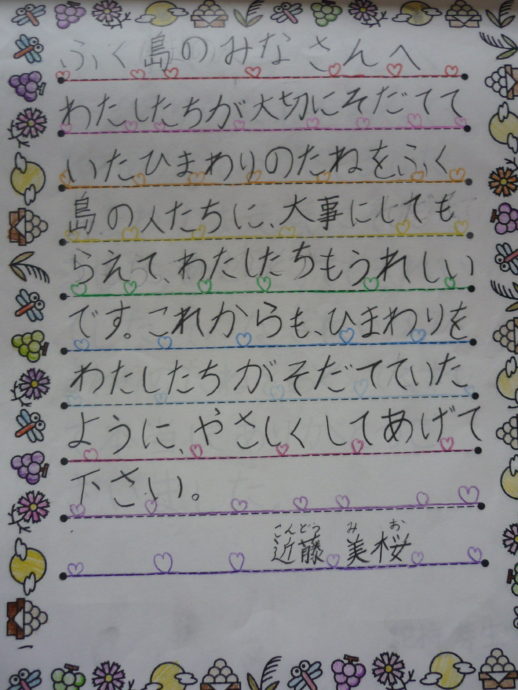 ふく島のみなさんへ
わたしたちが大切にそだてて
いたひまわりのたねをふく
島の人たちに、大事にしても
らえて、わたしたちもうれしい
です。これからも、ひまわりを
わたしたちがそだてていた
ように、やさしくしてあげて
下さい。
こんどう みお
近藤 美桜